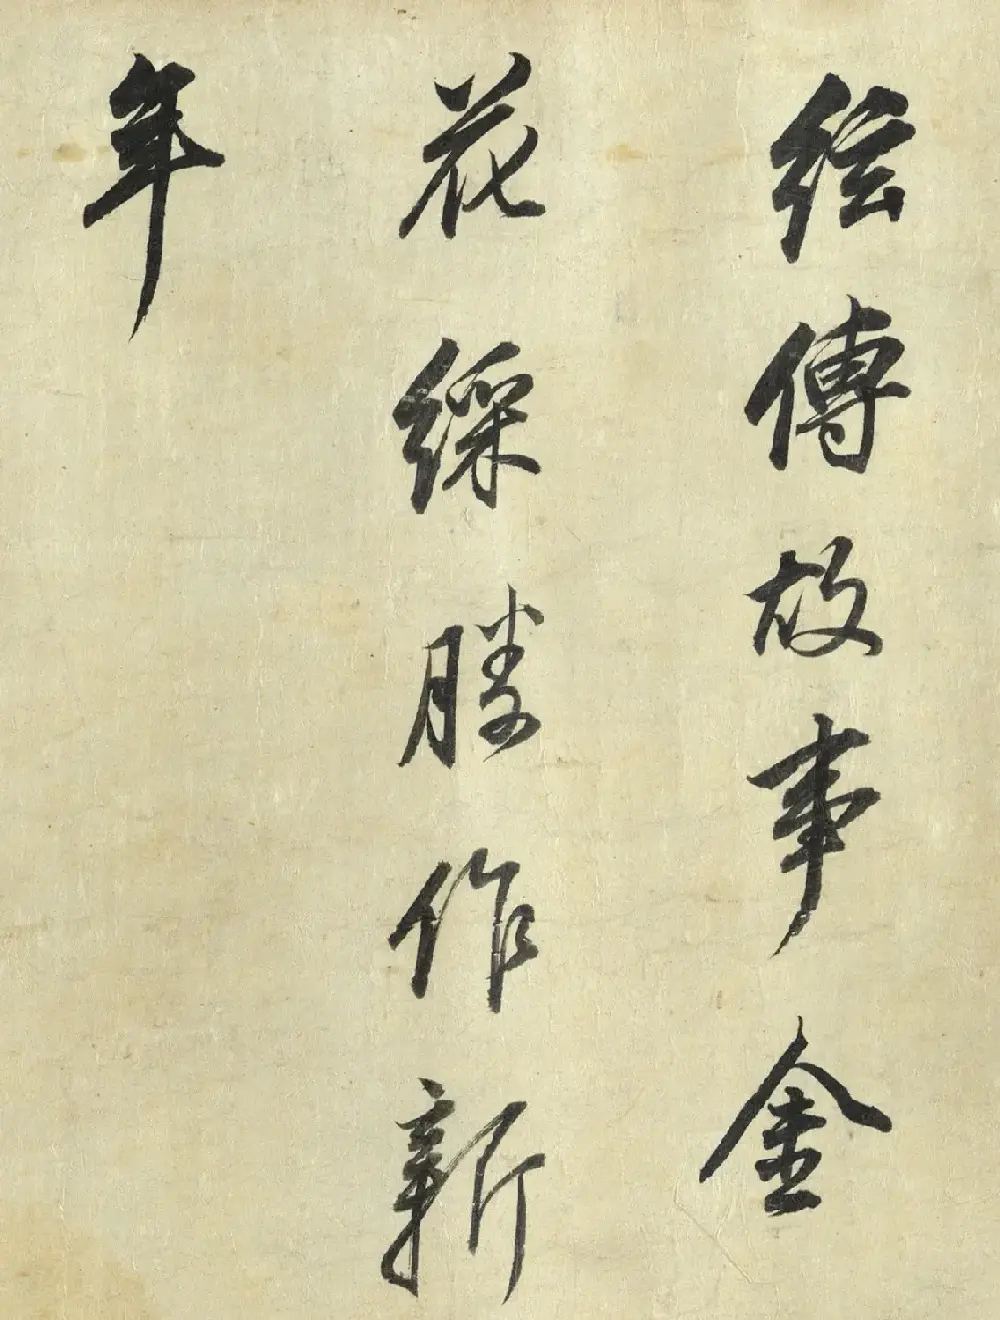 絃傳故事金
花綵勝作新
年